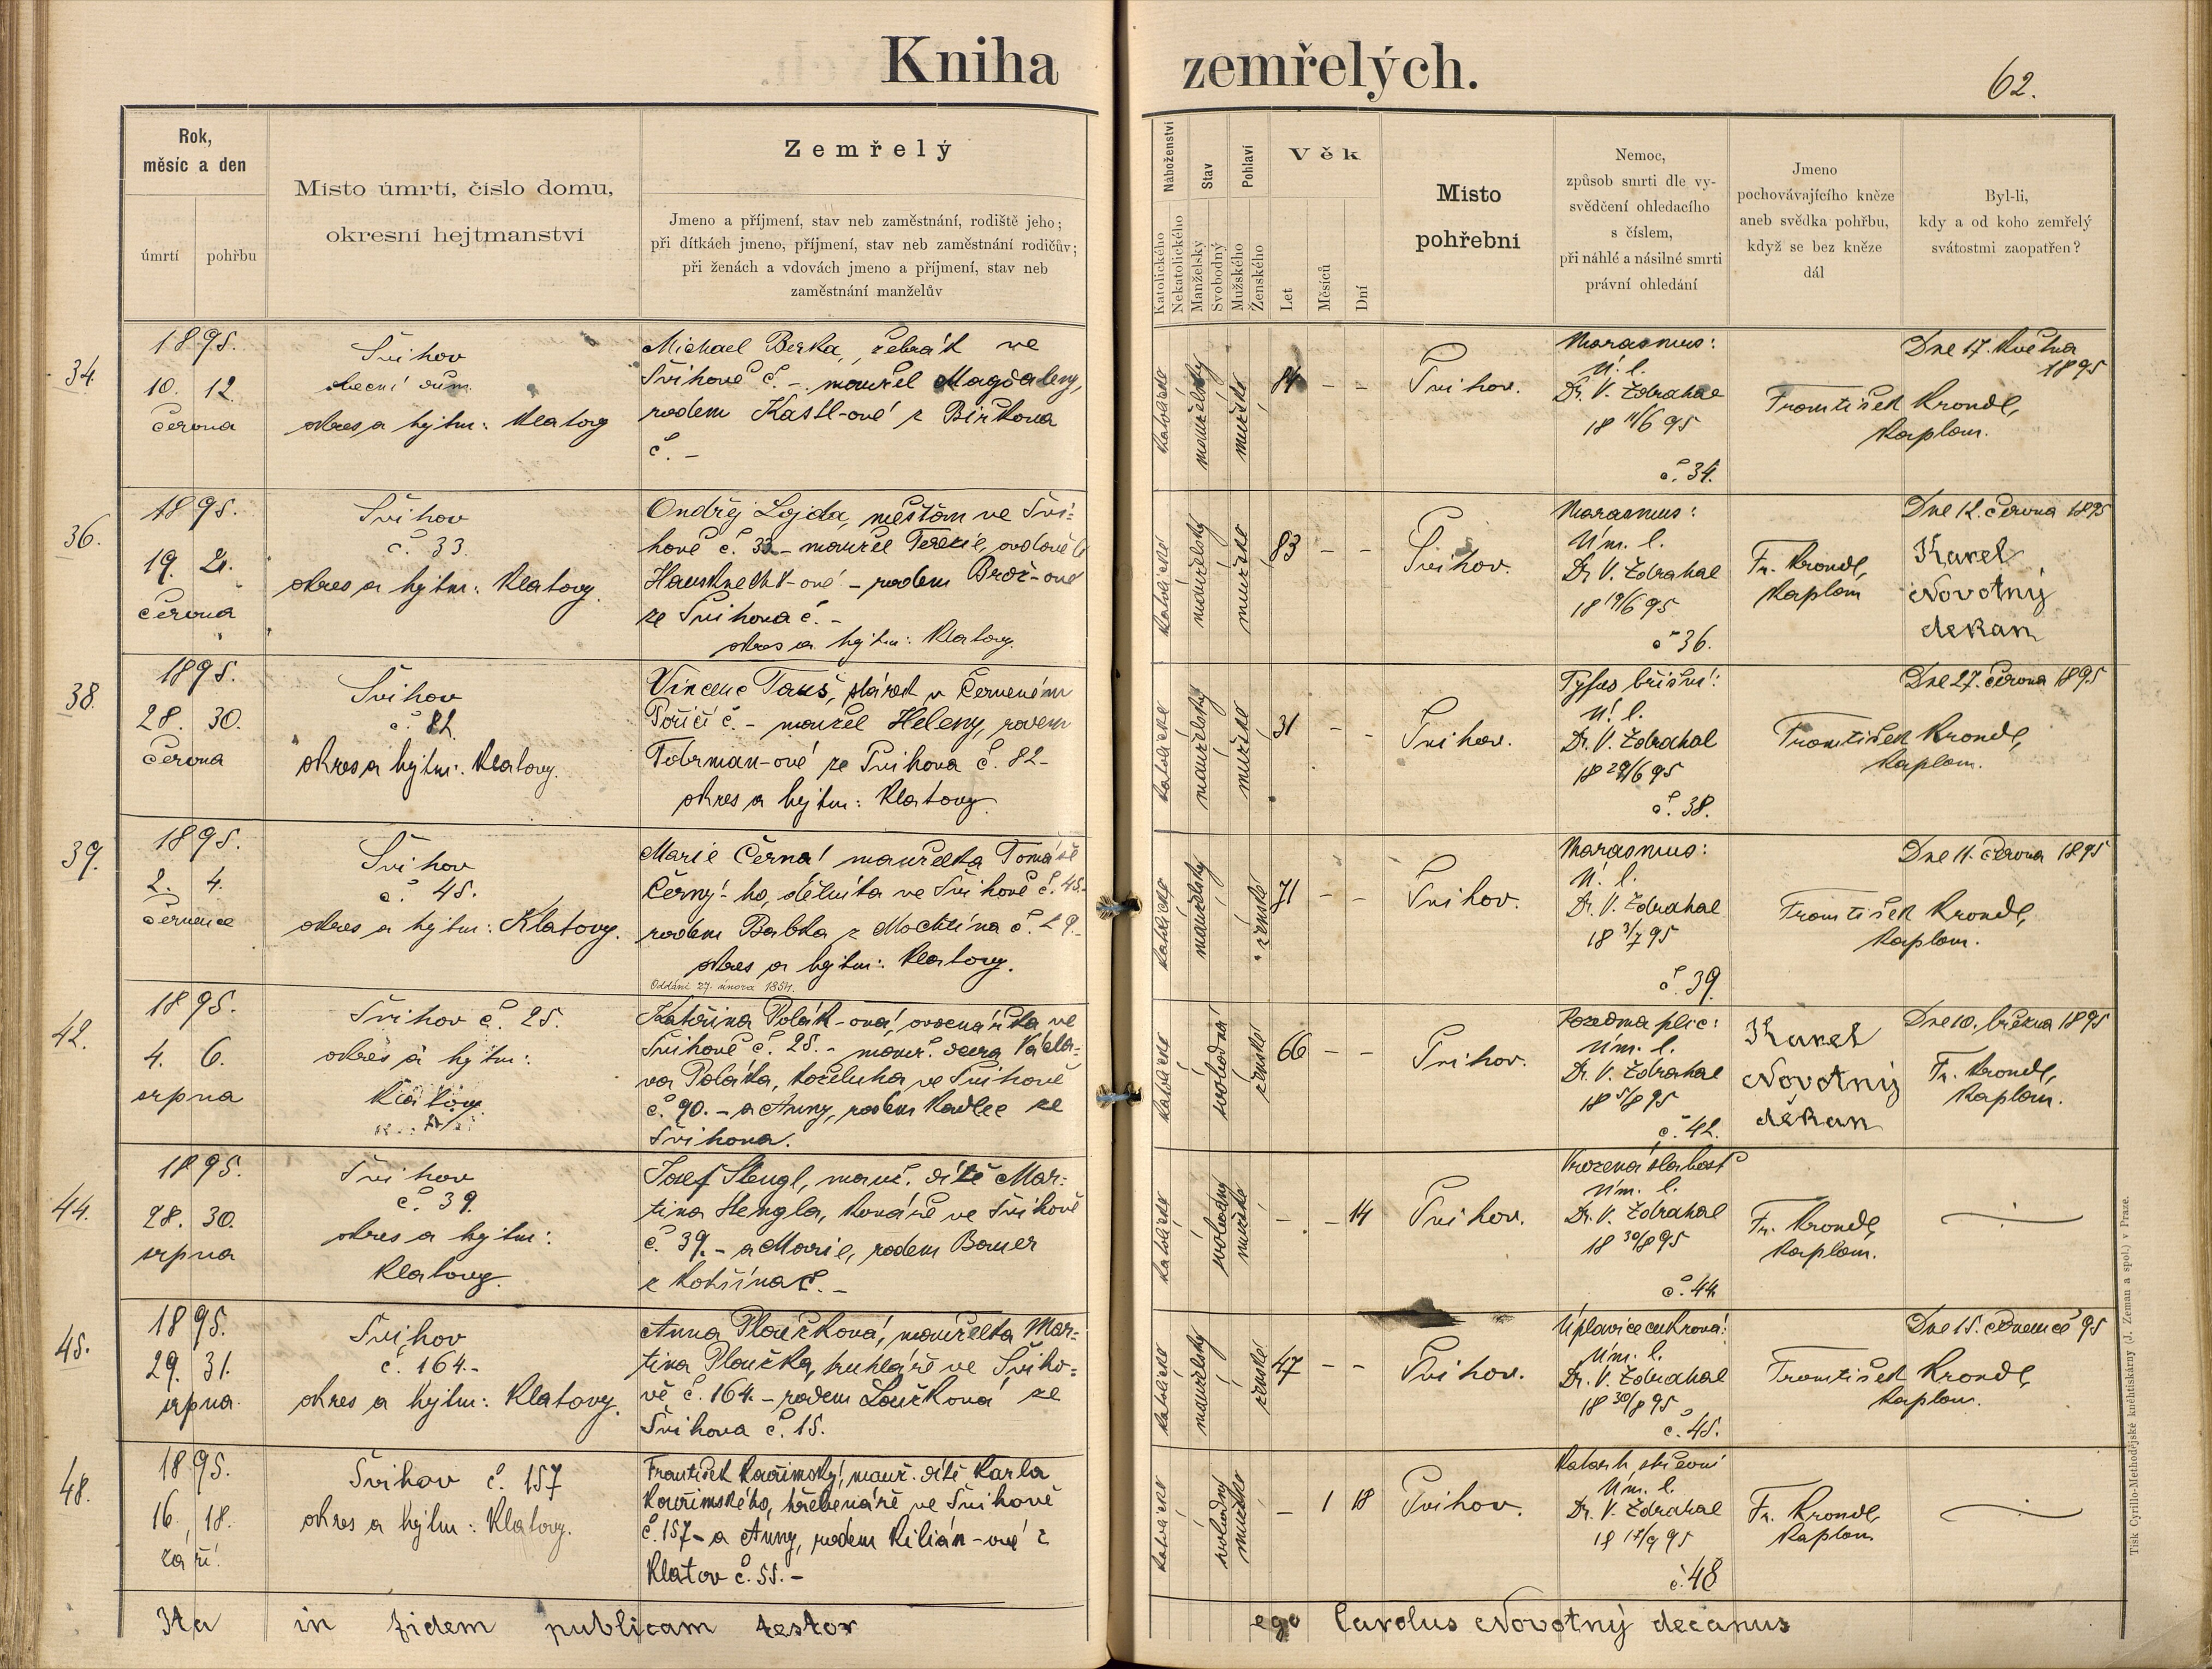 Kniha zemřelých.
62.
Rok,
měsíc a den
úmrtí
pohřbu
Místo úmrtí, číslo domu,
okresní hejtmanství
Zemřelý
Jmeno a příjmení, stav neb zaměstnání, rodiště jeho;
při dítkách jmeno, příjmení, stav neb zaměstnání rodičův;
při ženách a vdovách jmeno a příjmení, stav neb
zaměstnání manželův
Náboženství
Katolického
Nekatolického
Stav
Manželský
Svobodný
Pohlaví
Mužského
Ženského
Věk
Let
Měsíců
Dní
Místo
pohřební
Nemoc,
způsob smrti dle vy-
svědčení ohledacího
s číslem,
při náhlé a násilné smrti
právní ohledání
Jmeno
pochovávajícího kněze
aneb svědka pohřbu,
když se bez kněze
dál
Byl-li,
kdy a od koho zemřelý
svátostmi zaopatřen?
34.
1895.
10. 12.
června
Švihov
obecní dům
okres a hejtm: Klatovy
Michael Berka, žebrák ve
Švihově č. -. manžel Magdaleny,
rodem Kastl-ové z Birkova
č. -
katolické
manželský
mužské
84 - -
Švihov.
Marasmus:
Ú. l.
Dr. V. Zdrahal
18 11/6 95
č. 34.
František Krondl,
kaplan.
Dne 17. května
1895
36.
1895.
19. 21.
června
Švihov
č. 33.
okres a hejtm: Klatovy.
Ondřej Lojda, měštan ve Švi-
hově č. 33 - manžel Terezie, ovdovělé
Hausknecht-ové - rodem Brož-ové
ze Švihova č. -
okres a hejtm: Klatovy.
katolické
manželský
mužské
83 - -
Švihov.
Marasmus:
Úm. l.
Dr V. Zdrahal
18 19/6 95
č 36.
Fr. Krondl,
kaplan
Dne 12. června 1895
Karel
Novotný
děkan
38.
1895.
28. 30.
června
Švihov
č. 82.
okres a hejtm: Klatovy.
Vincenc Tauš, stárek v Červeném
Poříčí č. - manžel Heleny, rodem
Tobrman-ové ze Švihova č. 82-
okres a hejtm: Klatovy.
katolické
manželský
mužské
31 - -
Švihov.
Tyfus břišní:
Ú. l.
Dr. V. Zdrahal
18 29/6 95
č. 38.
František Krondl,
kaplan.
Dne 27. června 1895
39.
1895.
2. 4.
července
Švihov
č. 45.
okres a hejtm: Klatovy.
Marie Černá, manželka Tomáše
Černý-ho, dělníka ve Švihově č. 45-
rodem Babka z Mochtína č. 29.-
okres a hejtm: Klatovy.
Oddáni 27. února 1854.
katolické
manželský
ženské
71 - -
Švihov.
Marasmus:
Ú. l.
Dr. V. Zdrahal
18 3/7 95
č. 39.
František Krondl,
kaplan.
Dne 11. června 1895
42.
1895.
4. 6.
srpna
Švihov č. 25.
okres a hejtm:
Klatovy
Kateřina Polák-ová, ovocnářka ve
Švihově č. 25. - manž. dcera Václa-
va Poláka, koželuha ve Švihově
č. 90. - a Anny, rodem Kadlec ze
Švihova.
katolické
svobodná
ženské
66 - -
Švihov.
Rozedma plic:
Úm. l.
Dr. V. Zdrahal
18 5/8 95
č. 42.
Karel
Novotný
děkan
Dne 10. března 1895
Fr. Krondl,
kaplan.
44.
1895.
28. 30.
srpna
Švihov
č. 39.
okres a hejtm:
Klatovy.
Josef Stengl, manž. dítě Mar-
tina Stengla, kováře ve Švihově
č. 39. - a Marie, rodem Bauer
z Kokšína č. -
katolické
svobodný
mužské
- - 14
Švihov.
Vrozená slabost
Úm. l.
Dr. V. Zdrahal
18 30/8 95
č. 44
Fr. Krondl,
kaplan.
45.
1895.
29. 31.
srpna
Švihov
č. 164.-
okres a hejtm: Klatovy.
Anna Ploužková, manželka Mar-
tina Ploužka, truhláře ve Šviho-
vě č. 164. - rodem Loužková ze
Švihova č. 15.
katolické
manželský
ženské
47 - -
Švihov.
Úplavice cukrová:
Úm. l.
Dr. V. Zdrahal
18 30/8 95
č. 45.
František Krondl,
kaplan.
Dne 15. července 95
48.
1895.
16. 18.
září.
Švihov č. 157
okres a hejtm: Klatovy.
František Kouřimský, manž. dítě Karla
Kouřimského, hřebenáře ve Švihově
č. 157 - a Anny, rodem Kilián-ové z
Klatov č. 55. -
katolické
svobodný
mužské
- 1 18
Švihov.
Katarrh střevní
Úm. l.
Dr. V. Zdrahal
18 17/9 95
č. 48
Fr. Krondl,
kaplan
Ita in fidem publicam testor ego Carolus Novotný decanus
Tisk Cyrillo-Methodějské knihtiskárny (J. Zeman a spol.) v Praze.